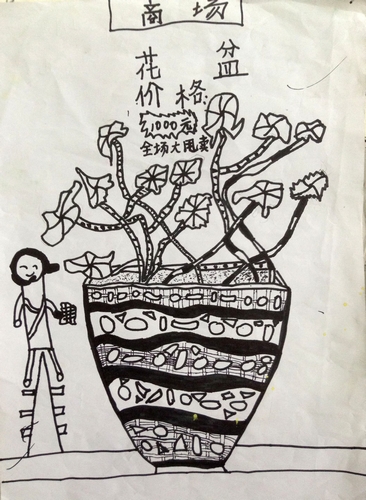 商场
花盆
价格
1000元
全场大甩卖